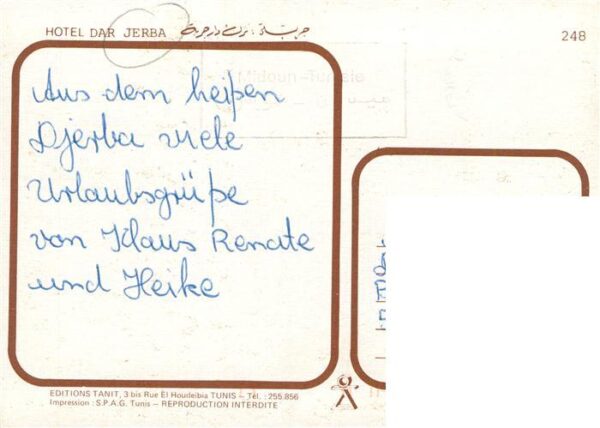 HOTEL DAR JERBA
248
Midoun-Tunisie
Aus dem heißen
Djerba viele
Urlaubsgrüße
von Klaus Renate
und Heike
EDITIONS TANIT, 3 bis Rue El Houdeibia TUNIS – Tél. : 255.856
Impression : S.P.A.G. Tunis – REPRODUCTION INTERDITE